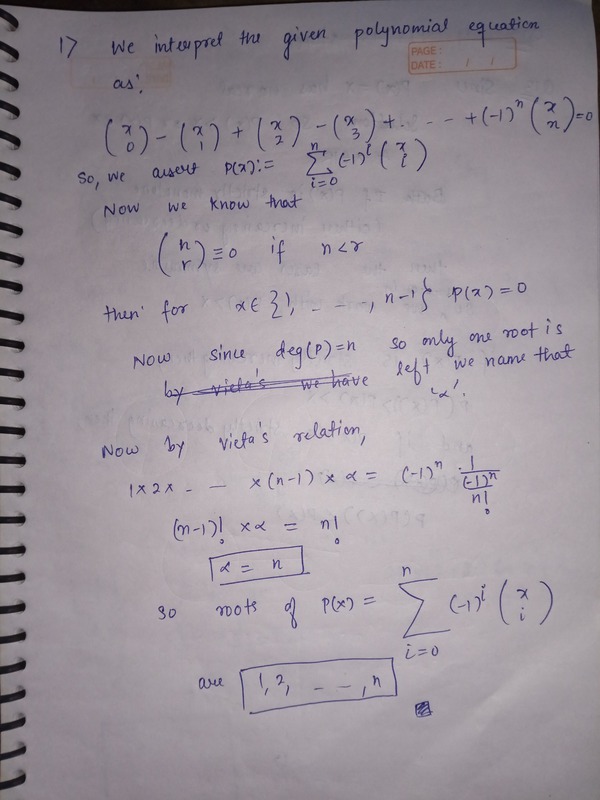 1> We interpret the given polynomial equation
PAGE :
DATE : / /
as:
(x 0) - (x 1) + (x 2) - (x 3) + . - - + (-1)^n (x n) = 0
So, we assert P(x) := ∑_{i=0}^{n} (-1)^i (x i)
Now we know that
(n r) ≡ 0 if n < r
then for x ∈ {1, - - - -, n-1} P(x) = 0
Now since deg(P)=n so only one root is
by vieta's we have left we name that
'α'.
Now by Vieta's relation,
1 x 2 x - - x (n-1) x α = (-1)^n . 1 / ((-1)^n / n!)
(n-1)! x α = n!
α = n
so roots of P(x) = ∑_{i=0}^{n} (-1)^i (x i)
are 1, 2, - - -, n